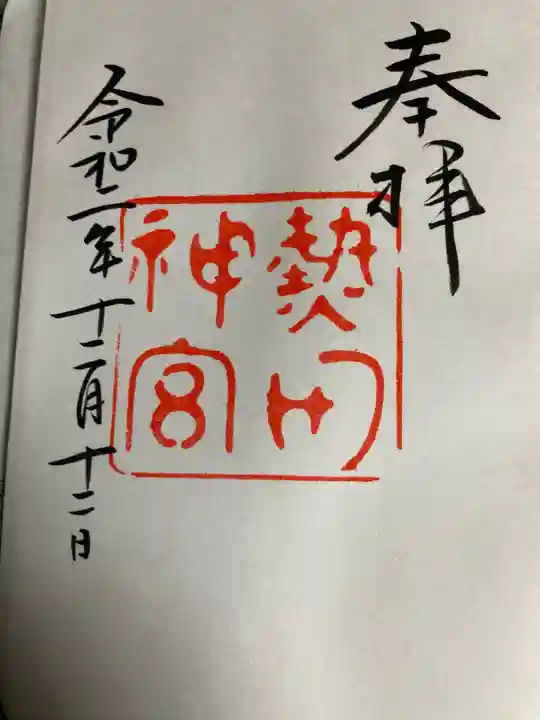 奉拝
熱田
神宮
令和二年十二月十二日